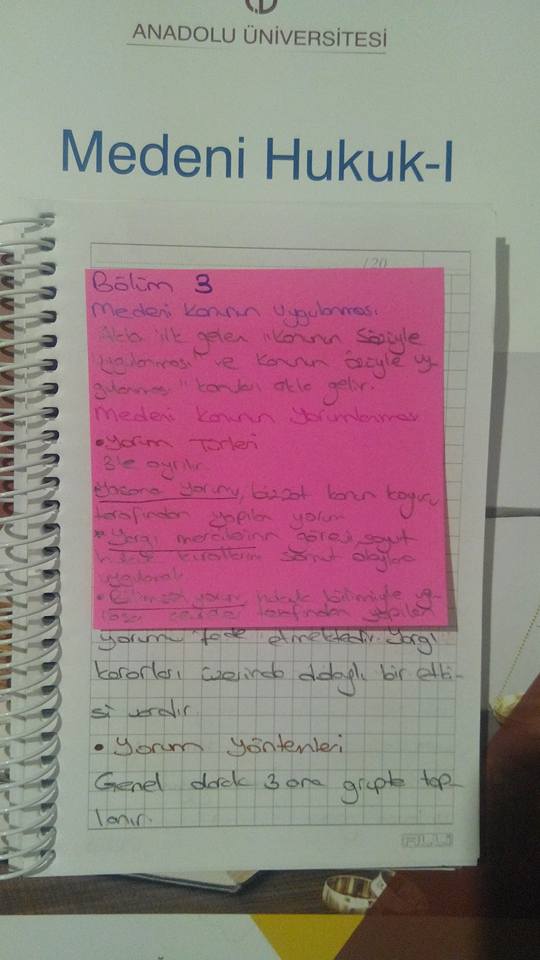 ANADOLU ÜNİVERSİTESİ
Medeni Hukuk-I
120
Bölüm 3
Medeni Kanunun Uygulanması
Akla ilk gelen "Kanunun Sözüyle
uygulanması" ve Kanunun özüyle uy-
gulanması" konuları akla gelir.
Medeni Kanunun Yorumlanması
• Yorum Türleri
3'e ayrılır.
Yasama Yorumu, bizzat kanun koyucu
tarafından yapılan yorum
* Yargı mercilerinin görevi, soyut
hukuk kurallarını somut olaylara
uygulamak
• Bilimsel yorum hukuk bilimiyle uğ-
tarafından yapılan
yorumu ifade etmektedir. Yargı
kararları üzerinde dolaylı bir etki-
si vardır.
• Yorum Yöntemleri
Genel olarak 3 ana grupta top-
lanır.